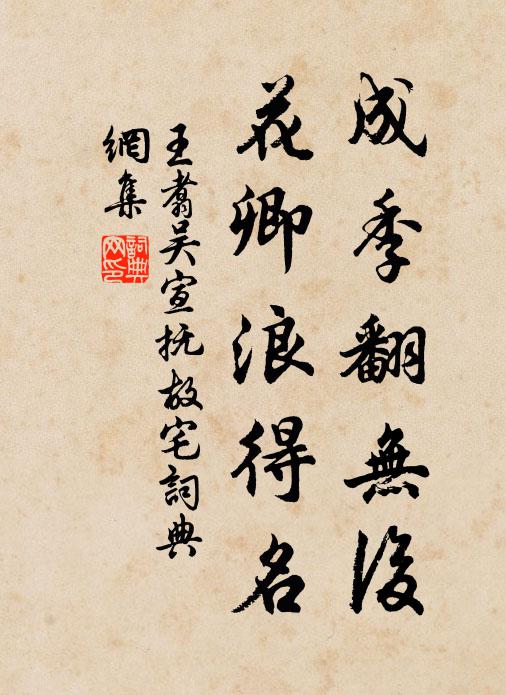 成季翻無後
花卿浪得名
王翥吴宣抚故宅詞典
網集
詞典
网印